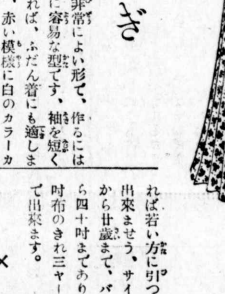 ぎ
非常によい形で、作るには
に容易な型です、袖を短く
れば、ふだん着にも適しま
、赤い模樣に白のカラーカ
れば若い方に引つ
出來ませう、サイ
から廿歲まで、バ
ら四十吋まであり
吋布のきれ三ヤー
で出來ます。
×